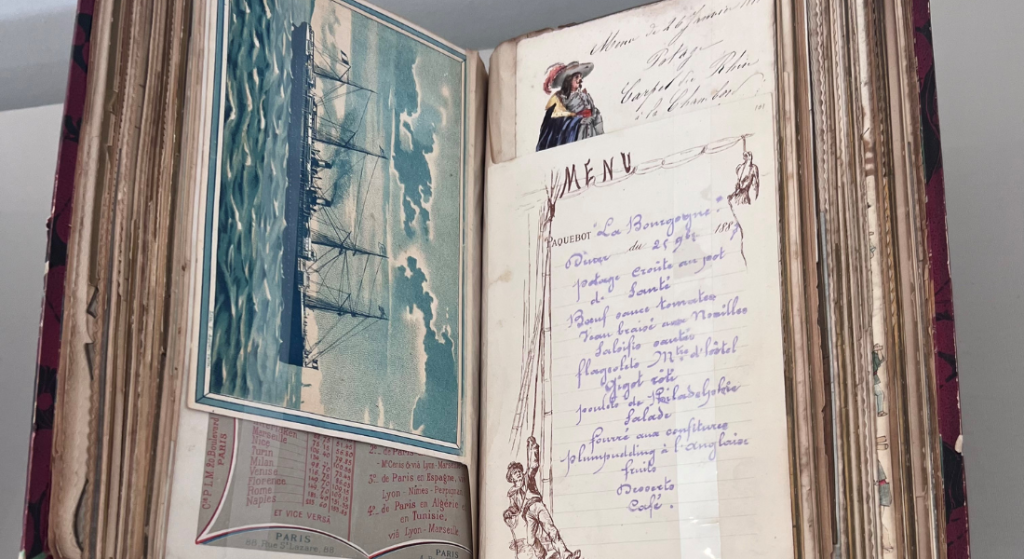 Menu du 16 Janvier
Potage
Carpe du Rhin
à la Chambord
MENU
PAQUEBOT "La Bourgogne".
du 25 9bre 1887
Diner
potage croûte au pot
d° Santé
Bœuf sauce tomates
Veau braisé aux Nouilles
Salsifis sautés
flageolets Mtre d'hôtel
Gigot rôti
poulets de Philadelphie
Salade
fourré aux confitures
plumpudding à l'Anglaise
fruits
Desserts
Café.
Marseille
Nice
Turin
Milan
Venise
Florence
Rome
Naples
ET VICE VERSA
PARIS
PARIS
2°_ de Paris
M't Cenis ou via Lyon-Marseille
3°_ de Paris en Espagne,
Lyon - Nîmes - Perpignan
4°_ de Paris en Algérie
en Tunisie,
via Lyon - Marseille
PARIS